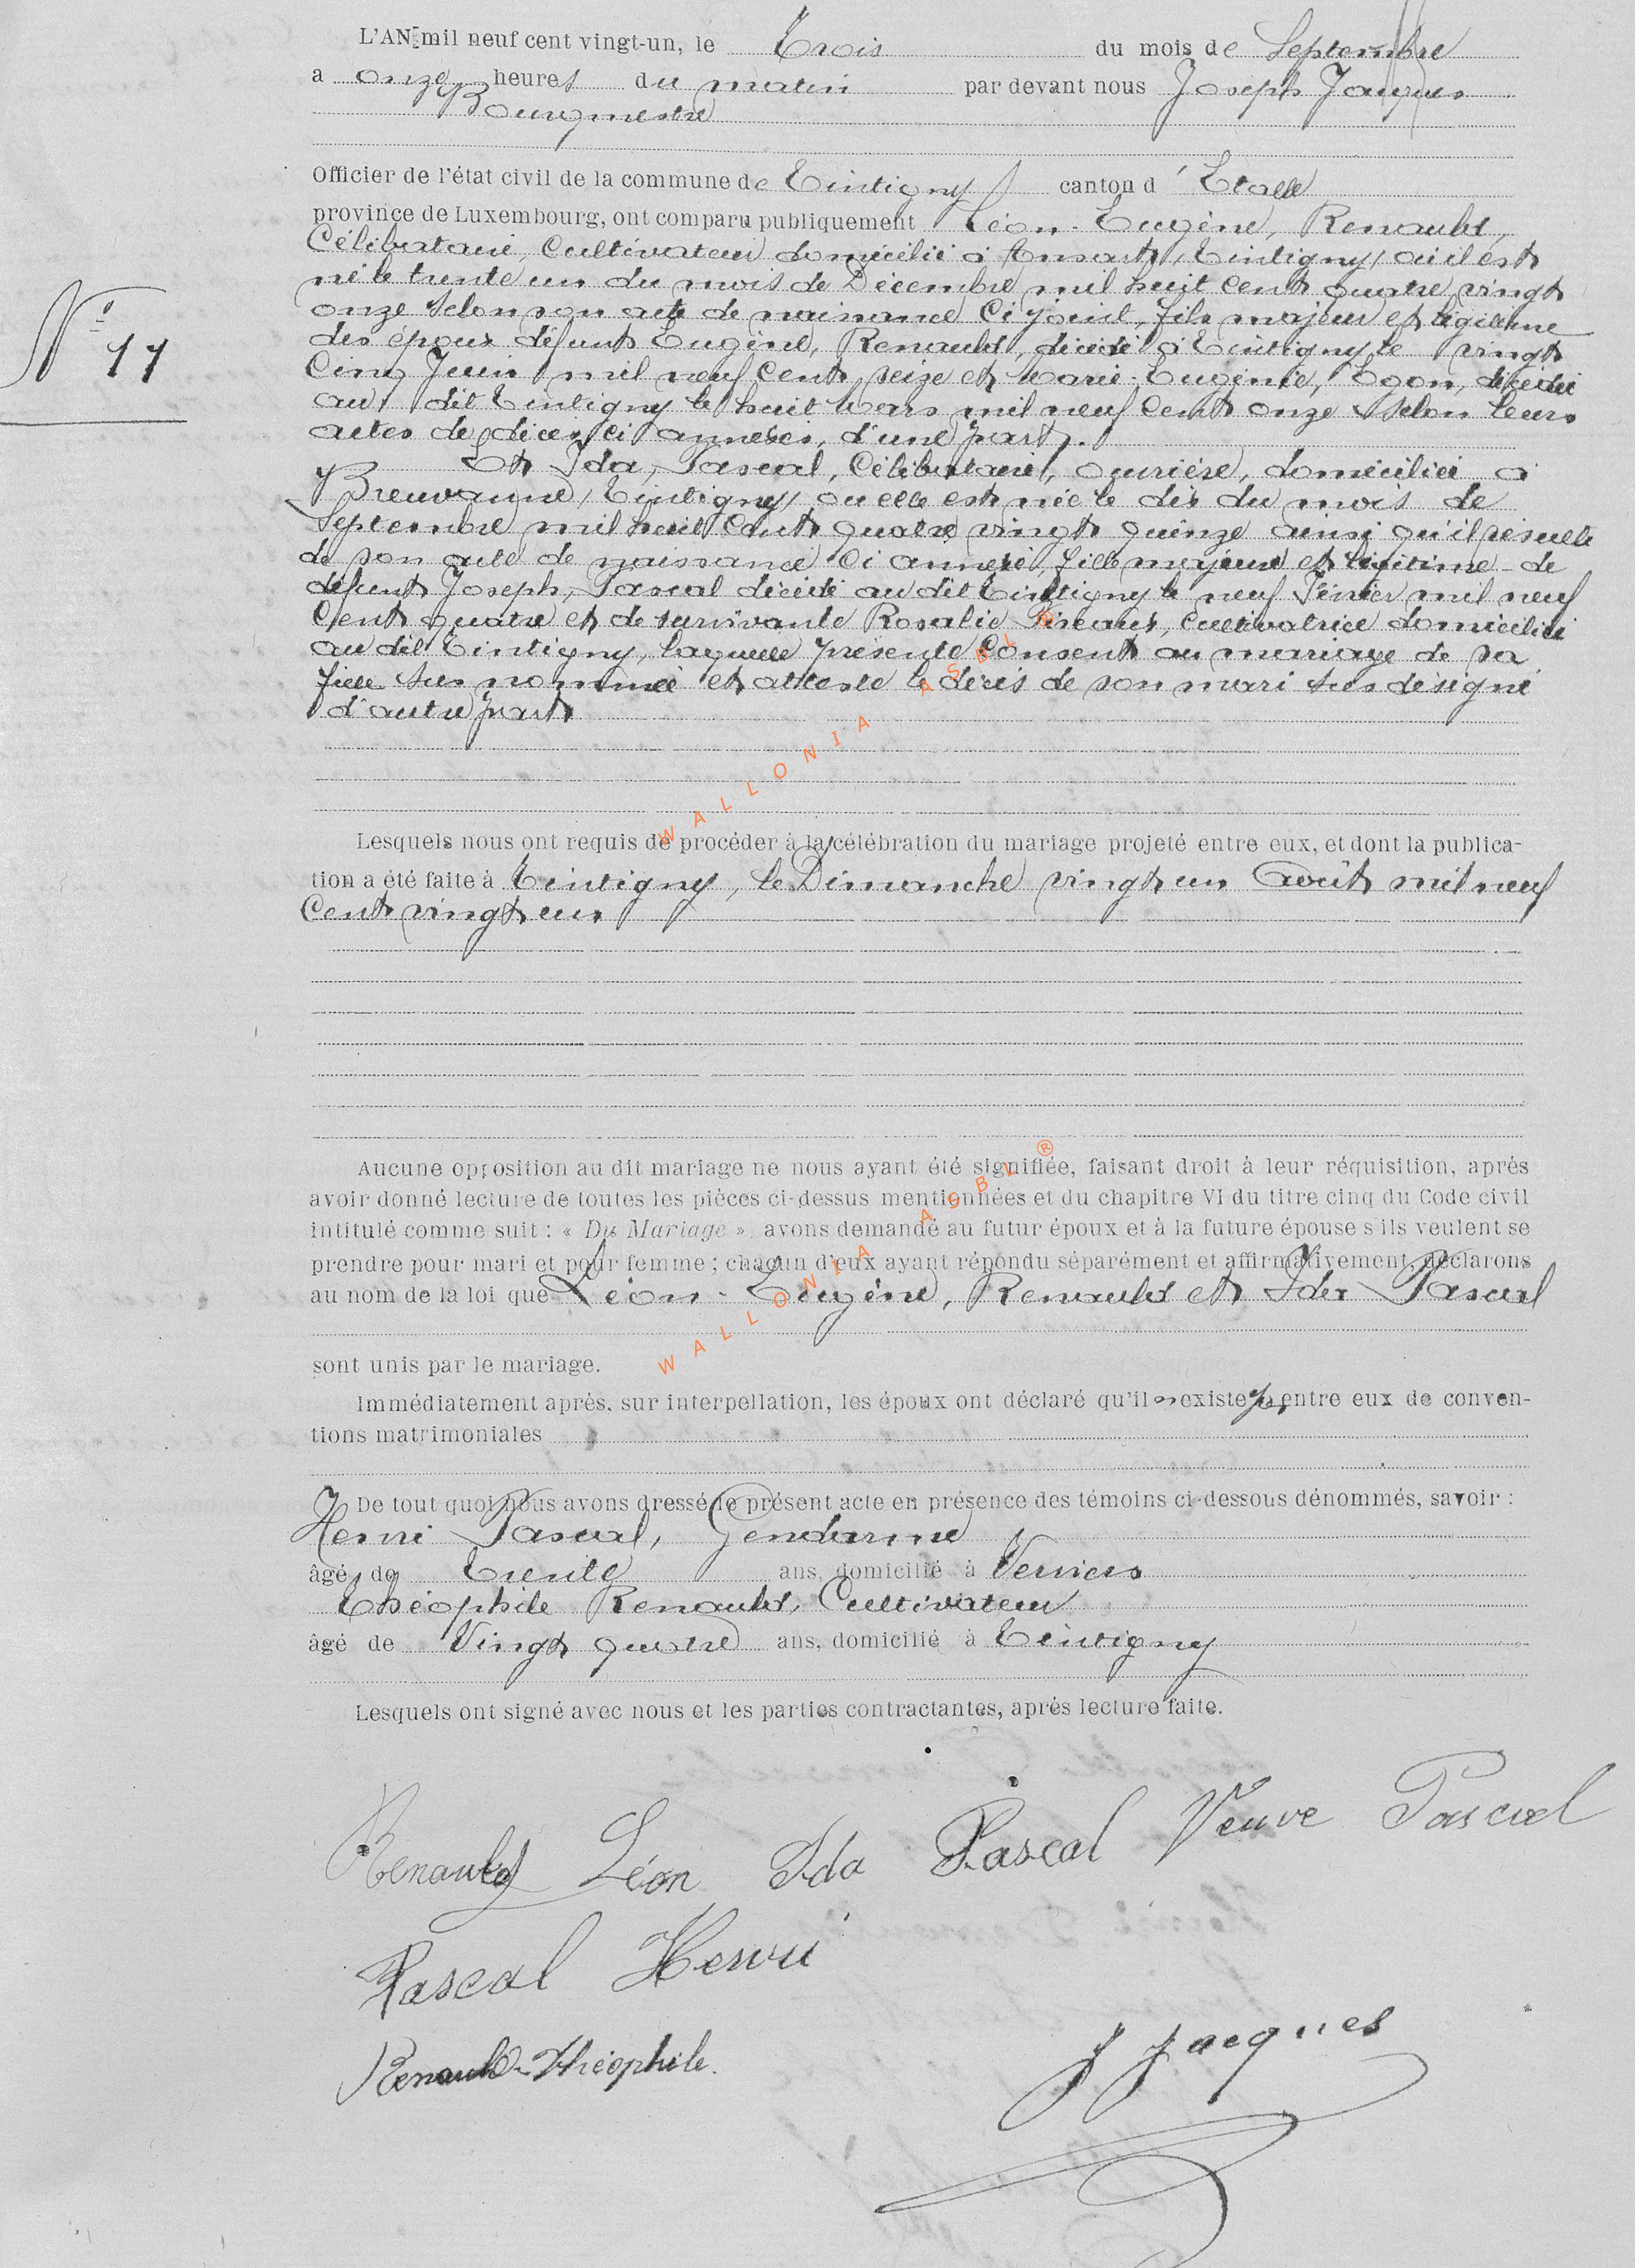 L'AN mil neuf cent vingt-un, le Trois du mois de Septembre
a onze heures du matin par devant nous Joseph Jacques
Bourgmestre
Officier de l'état civil de la commune de Tintigny canton d' Etalle
province de Luxembourg, ont comparu publiquement Léon-Eugène, Renauld,
Célibataire, Cultivateur domicilié à Ansart, Tintigny, où il est
né le trente un du mois de Décembre mil huit cent quatre vingt
onze selon son acte de naissance ci joint, fils majeur et légitime
des époux défunts Eugène, Renauld, décédé à Tintigny le vingt
Cinq Juin mil neuf cent seize et Marie-Eugénie, décédée
au dit Tintigny le huit Mars mil neuf cent onze selon leurs
actes de décès ci annexés, d'une part.
Et Ida, Pascal, Célibataire, ouvrière, domiciliée à
Breuvanne, Tintigny, où elle est née le dix du mois de
Septembre mil huit cent quatre vingt quinze ainsi qu'il résulte
de son acte de naissance ci annexé, fille majeure et légitime de
défunt Joseph, Pascal décédé au dit Tintigny le neuf Février mil neuf
Cent quatre et de survivante Rosalie Cultivatrice domiciliée
au dit Tintigny, laquelle présente consent au mariage de sa
fille sus nommée et atteste le décès de son mari sus désigné
d'autre part
Lesquels nous ont requis de procéder à la célébration du mariage projeté entre eux, et dont la publica-
tion a été faite à Tintigny, le Dimanche vingt un Août mil neuf
Cent vingt un
Aucune opposition au dit mariage ne nous ayant été signifiée, faisant droit à leur réquisition, après
avoir donné lecture de toutes les pièces ci-dessus mentionnées et du chapitre VI du titre cinq du Code civil
intitulé comme suit : « Du Mariage » avons demandé au futur époux et à la future épouse s'ils veulent se
prendre pour mari et pour femme ; chacun d'eux ayant répondu séparément et affirmativement, déclarons
au nom de la loi que Léon-Eugène, Renauld et Ida Pascal
sont unis par le mariage.
Immédiatement après, sur interpellation, les époux ont déclaré qu'il n'existe pas entre eux de conven-
tions matrimoniales
De tout quoi nous avons dressé le présent acte en présence des témoins ci-dessous dénommés, savoir :
Henri Pascal, Gendarme
âgé de Trente ans, domicilié à Verviers
Théophile Renauld, Cultivateur
âgé de Vingt quatre ans, domicilié à Tintigny
Lesquels ont signé avec nous et les parties contractantes, après lecture faite.
Renauld Léon Ida Pascal Veuve Pascal
Pascal Henri
Renauld Théophile.
J Jacques
N° 11
WALLONIA ASBL ®
WALLONIA ASBL ®